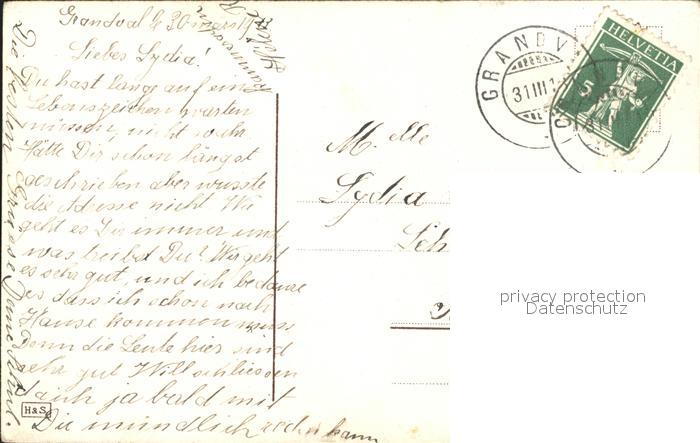 Grandval le 30 mars 19
Liebes Lydia!
Du hast lang auf ein
Lebenszeichen warten
müssen, nicht wahr
Hätte Dir schon längst
geschrieben aber wusste
die Adresse nicht Wie
geht es Dir immer und
was treibst Du? Wir geht
es sehr gut, und ich bedaure
es dass ich schon nach
Hause kommen muss
Denn die Leute hier sind
sehr gut Will schliessen
da ich ja bald mit
Dir mündlich reden kann
Die besten Grüsse Deine
H&S
Mlle
Lydia
Sch
GRANDV
31 III 1
HELVETIA
5
privacy protection
Datenschutz